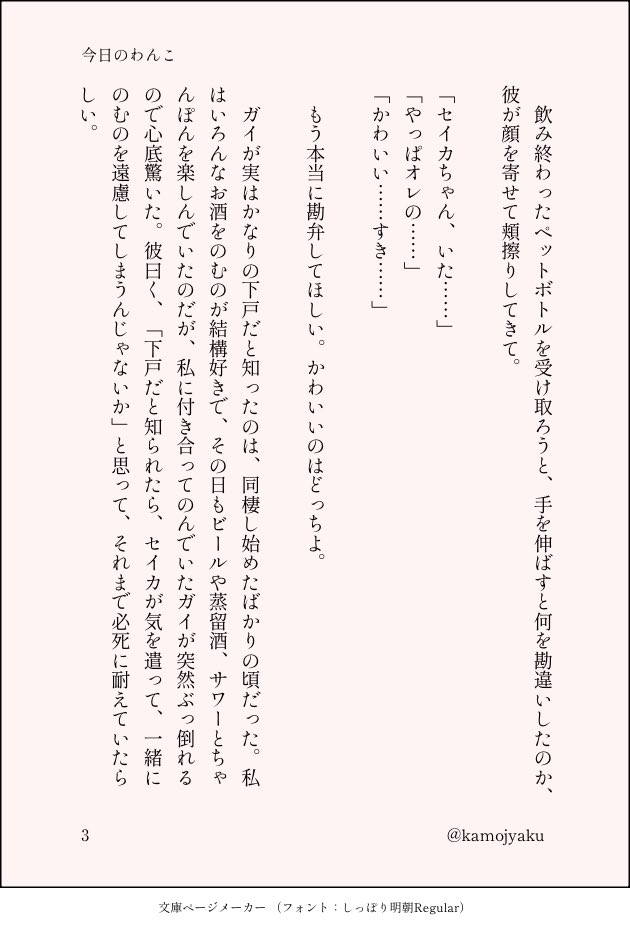 今日のわんこ
　飲み終わったペットボトルを受け取ろうと、手を伸ばすと何を勘違いしたのか、
彼が顔を寄せて頬擦りしてきて。
「セイカちゃん、いた……」
「やっぱオレの……」
「かわいい……すき……」
　もう本当に勘弁してほしい。かわいいのはどっちよ。
　ガイが実はかなりの下戸だと知ったのは、同棲し始めたばかりの頃だった。私
はいろんなお酒をのむのが結構好きで、その日もビールや蒸留酒、サワーとちゃ
んぽんを楽しんでいたのだが、私に付き合ってのんでいたガイが突然ぶっ倒れる
ので心底驚いた。彼曰く、「下戸だと知られたら、セイカが気を遣って、一緒に
のむのを遠慮してしまうんじゃないか」と思って、それまで必死に耐えていたら
しい。
3
@kamojyaku
文庫ページメーカー （フォント：しっぽり明朝Regular）